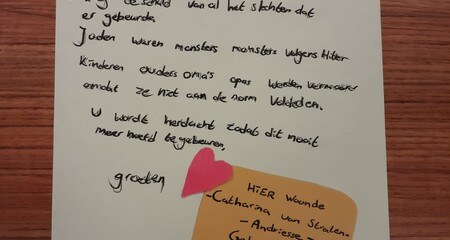 schuld van al het slechten dat
er gebeurde.
Joden waren monsters monsters volgens Hitler
Kinderen ouders oma's opas werden vermoord
omdat ze niet aan de norm voldeden.
U wordt herdacht zodat dit nooit
meer hoeft te gebeuren.
groeten
HIER Woonde
-Catharina van Straten-
-Andriesse-